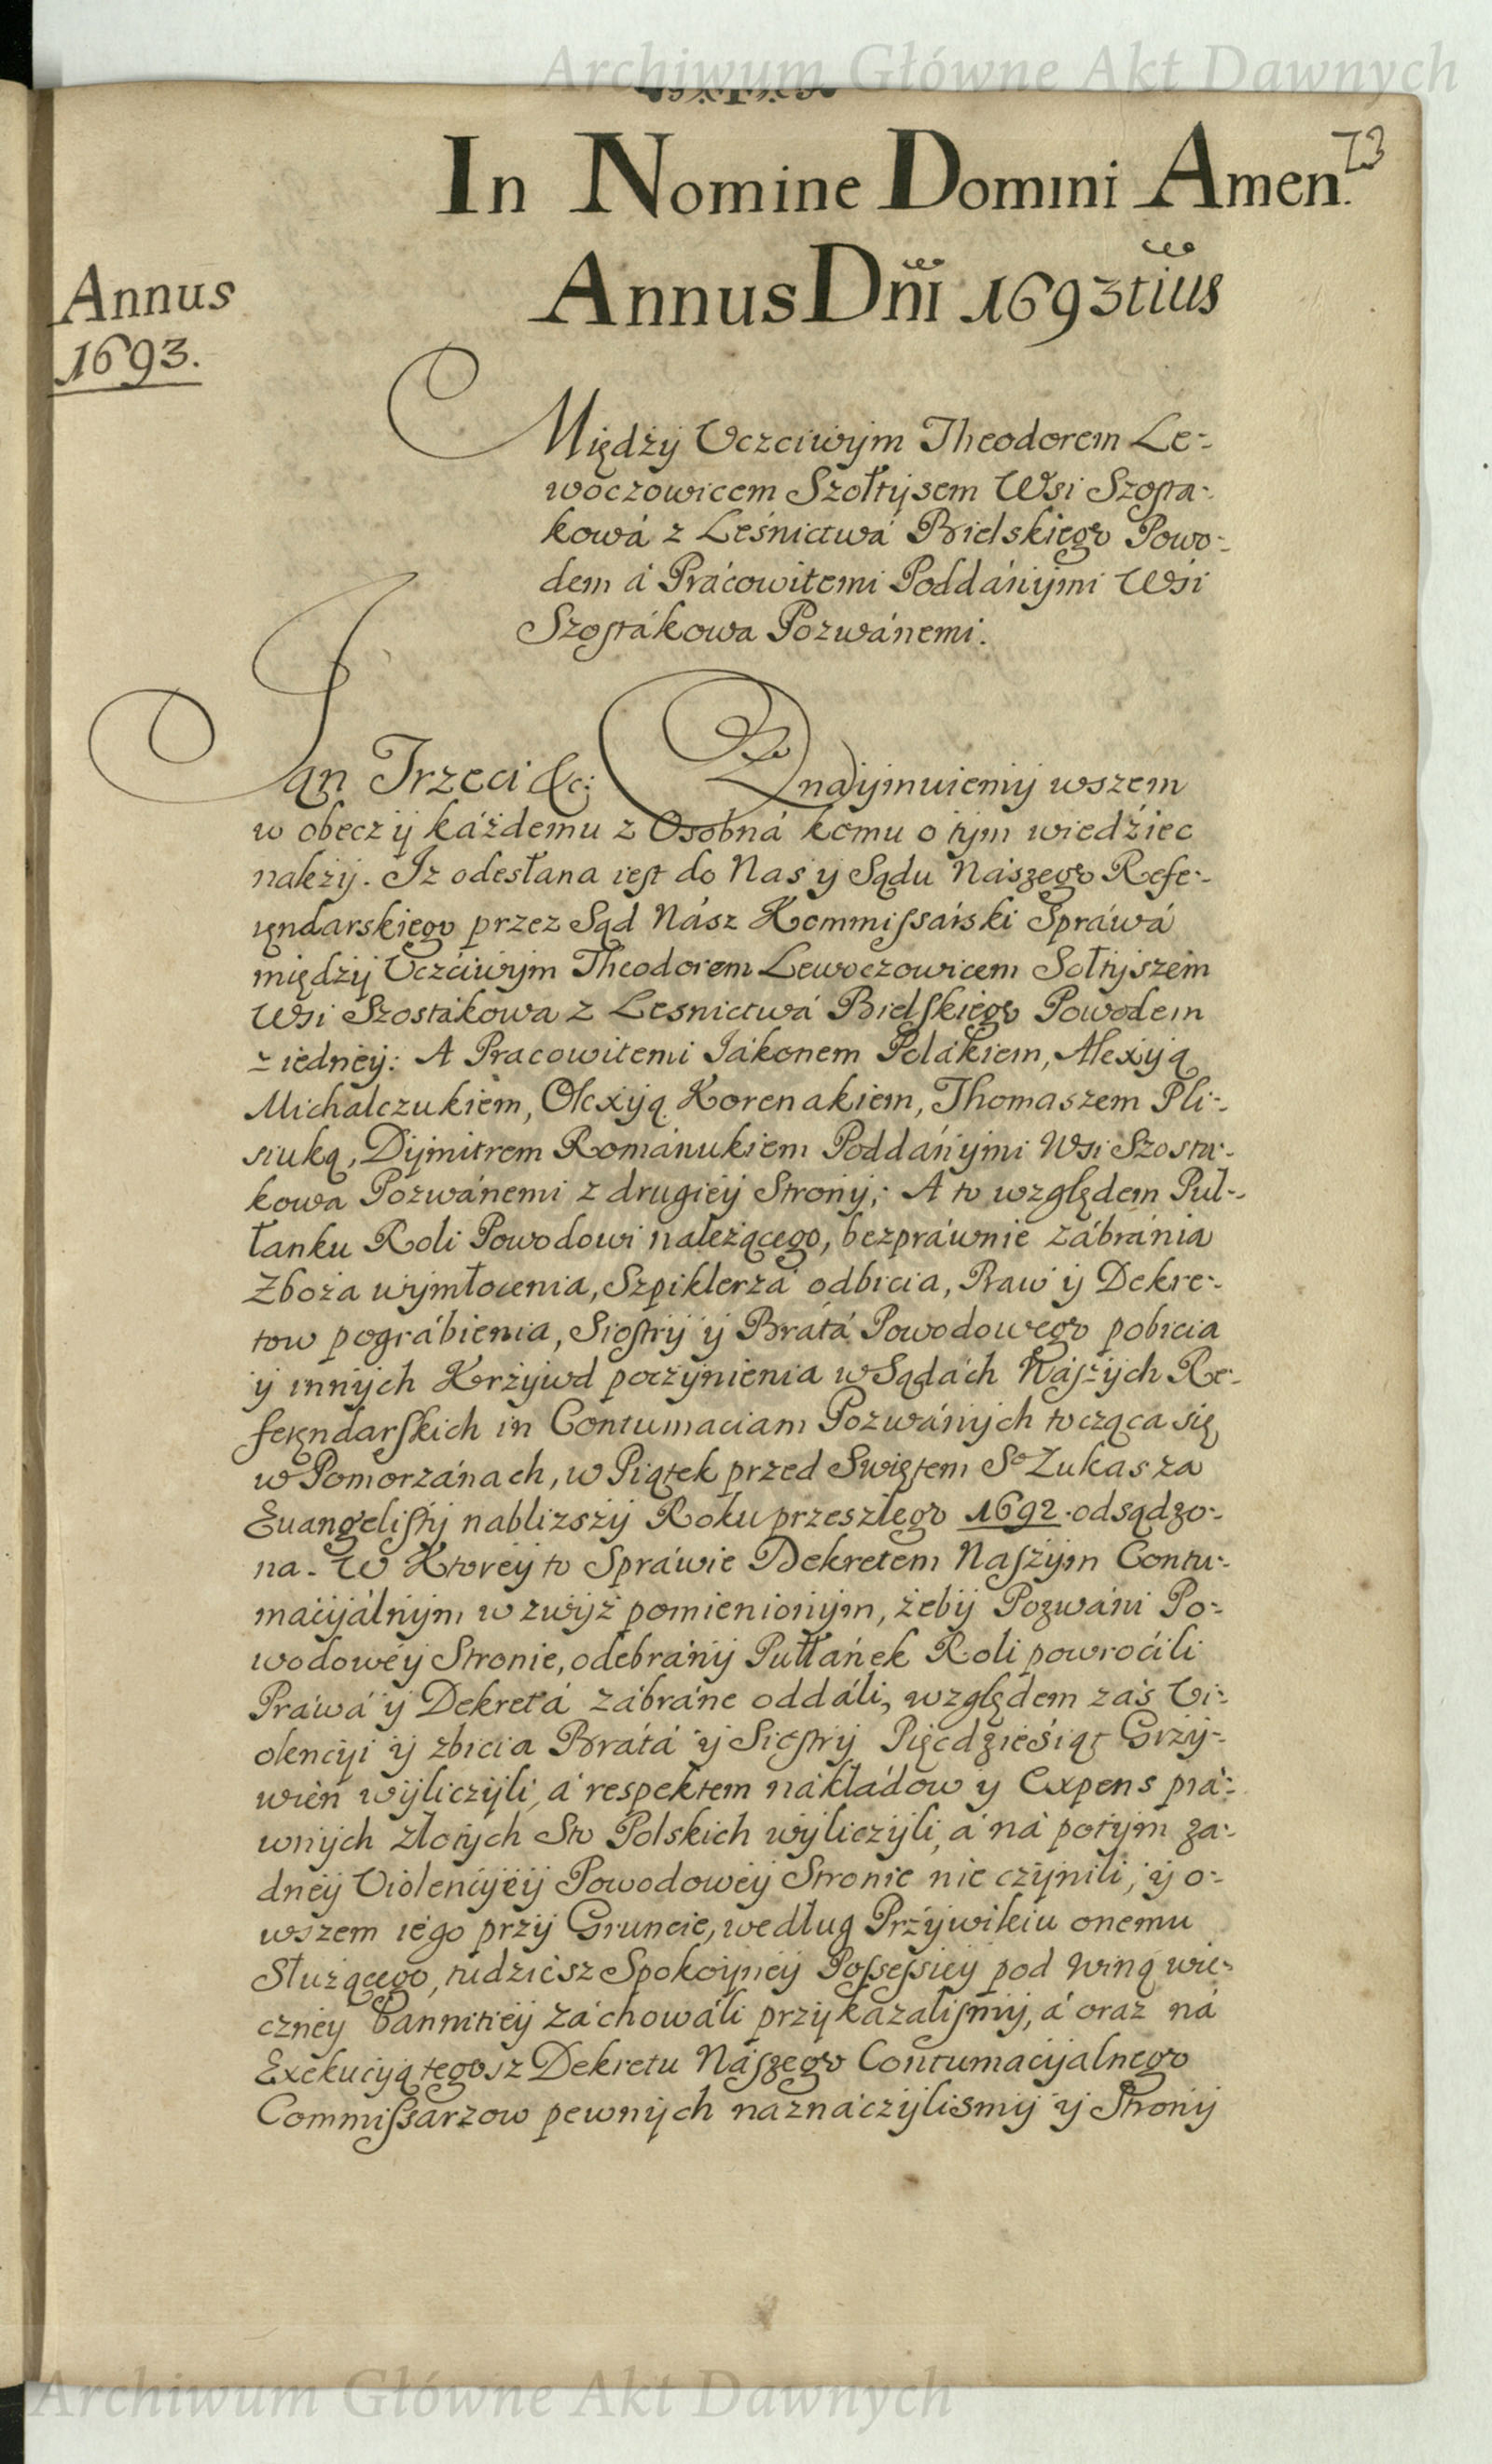 Archiwum Główne Akt Dawnych
73
In Nomine Domini Amen.
Annus Dni 1693tius
Annus
1693.
Między Vczciwym Theodorem Le-
woczowicem Szołtysem Wsi Szosta-
kowá z Leśnictwá Bielskiego Powo-
dem á Prácowitemi Poddánymi Wsi
Szostákowa Pozwánemi.
Jan Trzeci &c: Oznaymuiemy wszem
w obec y káżdemu z Osobná komu o tym wiedźiec
należy. Iz odesłana iest do Nas y Sądu Nászego Refe-
rendarskiego przez Sąd Nász Kommissarski Spráwá
między Vczciwym Theodorem Lewoczowicem Sołtyszem
Wsi Szostákowa z Lesnictwá Bielskiego Powodem
z iedney: A Pracowitemi Iákonem Polákiem, Alexyą
Michalczukiem, Olexyą Korenakiem, Thomaszem Pli-
siuką, Dymitrem Románukiem Poddánymi Wsi Szosta-
kowa Pozwánemi z drugiey Strony; A to względem Puł-
łanku Roli Powodowi należącego, bezpráwnie zábránia
Zboża wymłocenia, Szpiklerzá odbicia, Praw y Dekre-
tow pográbienia, Siostry y Brátá Powodowego pobicia
y innych Krzywd poczynienia w Sądách Nászych Re-
ferendarskich in Contumaciam Pozwánych tocząca się
w Pomorzánach, w Piątek przed Swiętem So Łukasza
Euangelisty nablizszy Roku przeszłego 1692. odsądzo-
na. W Ktorey to Spráwie Dekretem Naszym Contu-
macyálnym w zwyż pomienionym, żeby Pozwáni Po-
wodowey Stronie, odebrány Pułłánek Roli powroćili
Práwá y Dekretá zábráne oddáli, względem záś Vi-
olencyi y zbicia Brátá y Siostry Pięćdzieśiąt Grzy-
wien wyliczyli, á respektem nákłádow y Expens prá-
wnych złotych Sto Polskich wyliczyli, á ná potym ża-
dney Violencyey Powodowey Stronie nie czynili, y o-
wszem iego przy Gruncie, według Przywileiu onemu
Służącego, tudzież Spokoyney Possessiey pod winą wie-
czney Bannitiey záchowáli przykazalismy, á oraz ná
Exekucyą tegosz Dekretu Nászego Contumacyalnego
Commissarzow pewnych náznáczylismy y Strony
Archiwum Główne Akt Dawnych